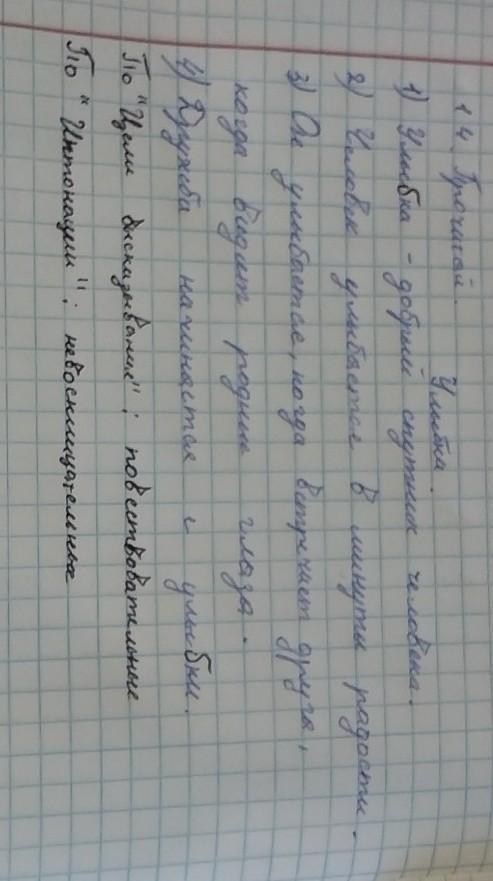 14. Прочитай.
Улыбка.
1) Улыбка - добрый спутник человека.
2) Человек улыбается в минуты радости.
3) Он улыбается, когда встречает друга,
когда видит родные глаза.
4) Дружба начинается с улыбки.
По "Цели высказывание": повествовательные
По "Интонации": невосклицательные